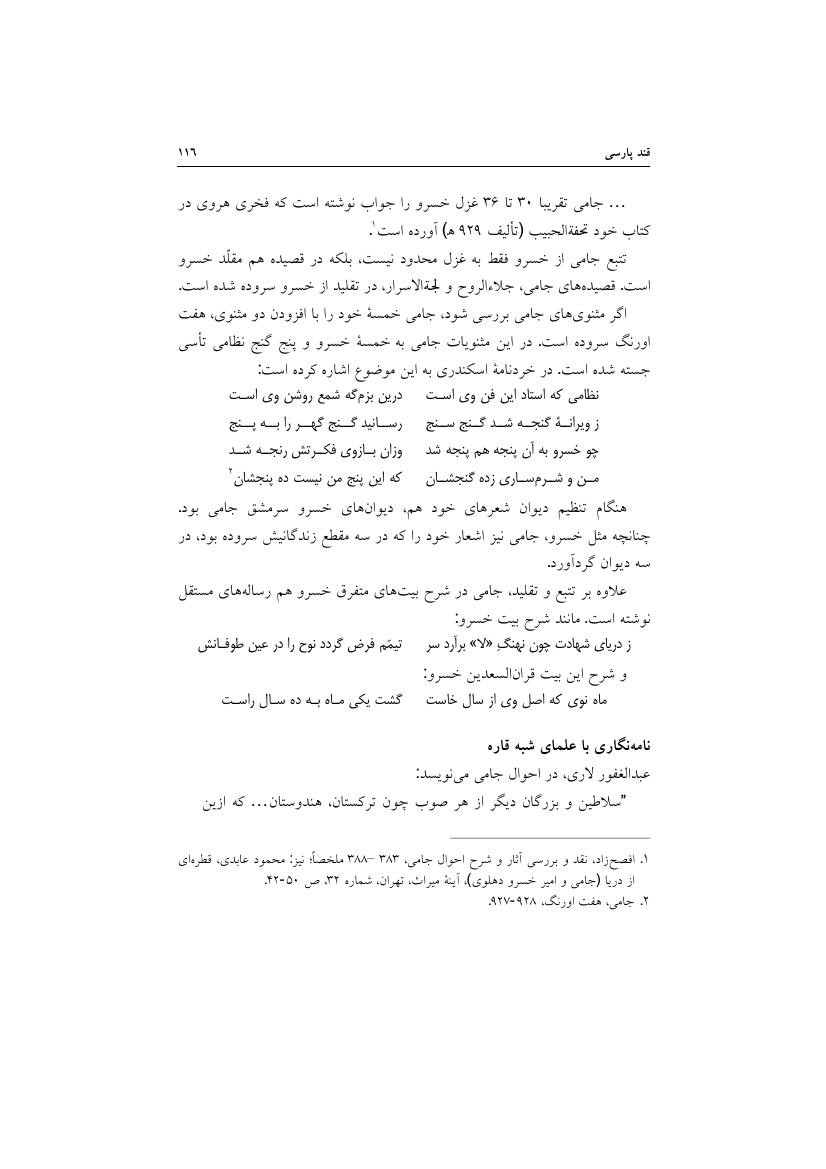 قند پارسی ۱۱٦
... جامی تقریبا ۳۰ تا ۳۶ غزل خسرو را جواب نوشته است که فخری هروی در
کتاب خود تحفةالحبیب (تألیف ۹۲۹ ه‍) آورده است۱.
تتبع جامی از خسرو فقط به غزل محدود نیست، بلکه در قصیده هم مقلّد خسرو
است. قصیده‌های جامی، جلاءالروح و لجةالاسرار، در تقلید از خسرو سروده شده است.
اگر مثنوی‌های جامی بررسی شود، جامی خمسهٔ خود را با افزودن دو مثنوی، هفت
اورنگ سروده است. در این مثنویات جامی به خمسهٔ خسرو و پنج گنج نظامی تأسی
جسته شده است. در خردنامهٔ اسکندری به این موضوع اشاره کرده است:
نظامی که استاد این فن وی اسـت درین بزم‌گه شمع روشن وی اسـت
ز ویرانـهٔ گنجـه شـد گـنج سـنج رسـانید گـنج گهـر را بـه پـنج
چو خسرو به آن پنجه هم پنجه شد وزان بـازوی فکـرتش رنجـه شـد
مـن و شـرم‌سـاری زده گنجشـان که این پنج من نیست ده پنجشان۲
هنگام تنظیم دیوان شعرهای خود هم، دیوان‌های خسرو سرمشق جامی بود.
چنانچه مثل خسرو، جامی نیز اشعار خود را که در سه مقطع زندگانیش سروده بود، در
سه دیوان گردآورد.
علاوه بر تتبع و تقلید، جامی در شرح بیت‌های متفرق خسرو هم رساله‌های مستقل
نوشته است. مانند شرح بیت خسرو:
ز دریای شهادت چون نهنگِ «لا» برآرد سر تیمّم فرض گردد نوح را در عین طوفـانش
و شرح این بیت قران‌السعدین خسرو:
ماه نوی که اصل وی از سال خاست گشت یکی مـاه بـه ده سـال راسـت
نامه‌نگاری با علمای شبه قاره
عبدالغفور لاری، در احوال جامی می‌نویسد:
”سلاطین و بزرگان دیگر از هر صوب چون ترکستان، هندوستان... که ازین
۱. افصح‌زاد، نقد و بررسی آثار و شرح احوال جامی، ۳۸۳ –۳۸۸ ملخصاً؛ نیز: محمود عابدی، قطره‌ای
از دریا (جامی و امیر خسرو دهلوی)، آینهٔ میراث، تهران، شماره ۳۲، ص ۵۰-۴۲.
۲. جامی، هفت اورنگ، ۹۲۸-۹۲۷.